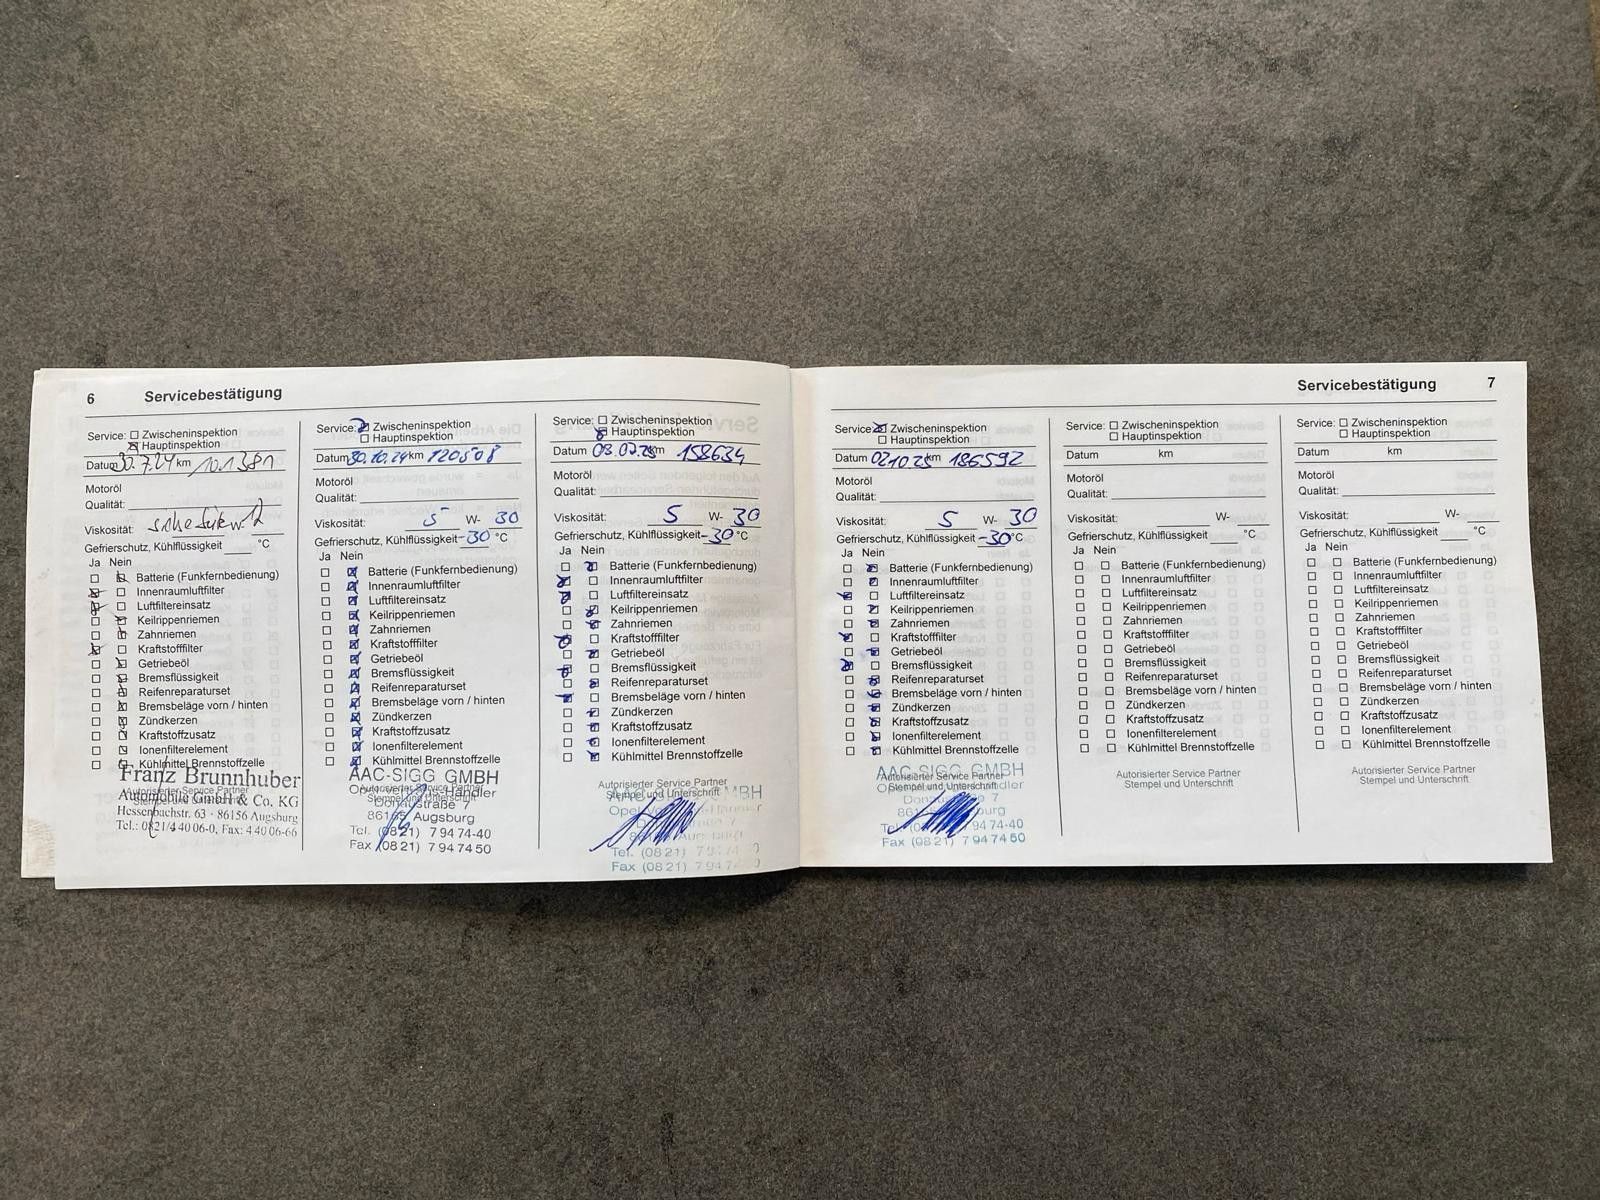 6 Servicebestätigung
Service: Zwischeninspektion
Hauptinspektion
Datum 30.7.24 km 101381
Motoröl
Qualität:
Viskosität:
Gefrierschutz, Kühlflüssigkeit °C
Ja Nein
Batterie (Funkfernbedienung)
Innenraumluftfilter
Luftfiltereinsatz
Keilrippenriemen
Zahnriemen
Kraftstofffilter
Getriebeöl
Bremsflüssigkeit
Reifenreparaturset
Bremsbeläge vorn / hinten
Zündkerzen
Kraftstoffzusatz
Ionenfilterelement
Kühlmittel Brennstoffzelle
Autorisierter Service Partner
Stempel und Unterschrift
Franz Brunnhuber
Automobile GmbH & Co. KG
Hessenbachstr. 63 · 86156 Augsburg
Tel.: 0821/4 40 06-0, Fax: 4 40 06-66
Service: Zwischeninspektion
Hauptinspektion
Datum 30.10.24 km 120508
Motoröl
Qualität:
Viskosität: 5 W- 30
Gefrierschutz, Kühlflüssigkeit -30 °C
Ja Nein
Batterie (Funkfernbedienung)
Innenraumluftfilter
Luftfiltereinsatz
Keilrippenriemen
Zahnriemen
Kraftstofffilter
Getriebeöl
Bremsflüssigkeit
Reifenreparaturset
Bremsbeläge vorn / hinten
Zündkerzen
Kraftstoffzusatz
Ionenfilterelement
Kühlmittel Brennstoffzelle
AAC-SIGG GMBH
Autorisierter Service Partner
Stempel und Unterschrift
Opel Vertrags-Händler
Donaustraße 7
86165 Augsburg
Tel. (0821) 7 94 74-40
Fax (0821) 7 94 74 50
Service: Zwischeninspektion
Hauptinspektion
Datum 03.02.25 km 158634
Motoröl
Qualität:
Viskosität: 5 W- 30
Gefrierschutz, Kühlflüssigkeit -30 °C
Ja Nein
Batterie (Funkfernbedienung)
Innenraumluftfilter
Luftfiltereinsatz
Keilrippenriemen
Zahnriemen
Kraftstofffilter
Getriebeöl
Bremsflüssigkeit
Reifenreparaturset
Bremsbeläge vorn / hinten
Zündkerzen
Kraftstoffzusatz
Ionenfilterelement
Kühlmittel Brennstoffzelle
Autorisierter Service Partner
Stempel und Unterschrift
Tel. (0821)
Fax (0821)
Servicebestätigung 7
Service: Zwischeninspektion
Hauptinspektion
Datum 02.10.25 km 186592
Motoröl
Qualität:
Viskosität: 5 W- 30
Gefrierschutz, Kühlflüssigkeit -30 °C
Ja Nein
Batterie (Funkfernbedienung)
Innenraumluftfilter
Luftfiltereinsatz
Keilrippenriemen
Zahnriemen
Kraftstofffilter
Getriebeöl
Bremsflüssigkeit
Reifenreparaturset
Bremsbeläge vorn / hinten
Zündkerzen
Kraftstoffzusatz
Ionenfilterelement
Kühlmittel Brennstoffzelle
AAC-SIGG GMBH
Autorisierter Service Partner
Stempel und Unterschrift
Tel. (0821) 7 94 74-40
Fax (0821) 7 94 74 50
Service: Zwischeninspektion
Hauptinspektion
Datum km
Motoröl
Qualität:
Viskosität: W-
Gefrierschutz, Kühlflüssigkeit °C
Ja Nein
Batterie (Funkfernbedienung)
Innenraumluftfilter
Luftfiltereinsatz
Keilrippenriemen
Zahnriemen
Kraftstofffilter
Getriebeöl
Bremsflüssigkeit
Reifenreparaturset
Bremsbeläge vorn / hinten
Zündkerzen
Kraftstoffzusatz
Ionenfilterelement
Kühlmittel Brennstoffzelle
Autorisierter Service Partner
Stempel und Unterschrift
Service: Zwischeninspektion
Hauptinspektion
Datum km
Motoröl
Qualität:
Viskosität: W-
Gefrierschutz, Kühlflüssigkeit °C
Ja Nein
Batterie (Funkfernbedienung)
Innenraumluftfilter
Luftfiltereinsatz
Keilrippenriemen
Zahnriemen
Kraftstofffilter
Getriebeöl
Bremsflüssigkeit
Reifenreparaturset
Bremsbeläge vorn / hinten
Zündkerzen
Kraftstoffzusatz
Ionenfilterelement
Kühlmittel Brennstoffzelle
Autorisierter Service Partner
Stempel und Unterschrift